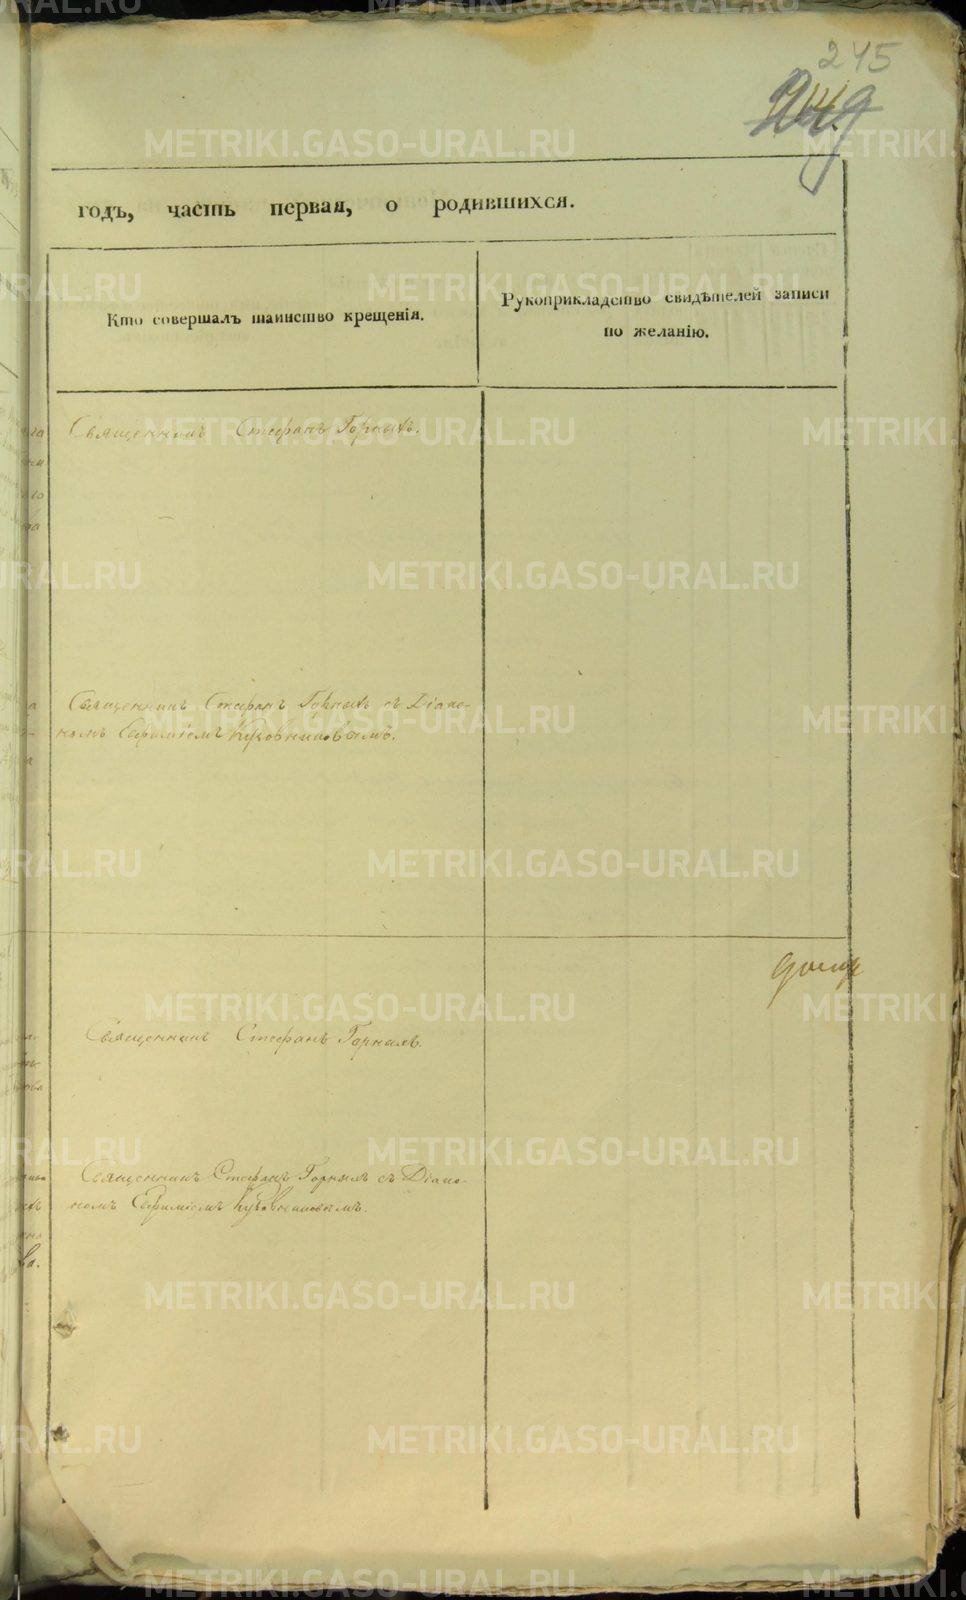 245
249
годъ, часть первая, о родившихся.
Кто совершалъ таинство крещенія.
Рукоприкладство свидѣтелей записи
по желанію.
Священникъ Стефанъ Горныхъ.
Священникъ Стефанъ Горныхъ съ Діако-
номъ Евфиміемъ Куковниковымъ.
Священникъ Стефанъ Горныхъ.
Священникъ Стефанъ Горныхъ съ Діако-
номъ Евфиміемъ Куковниковымъ.
METRIKI.GASO-URAL.RU